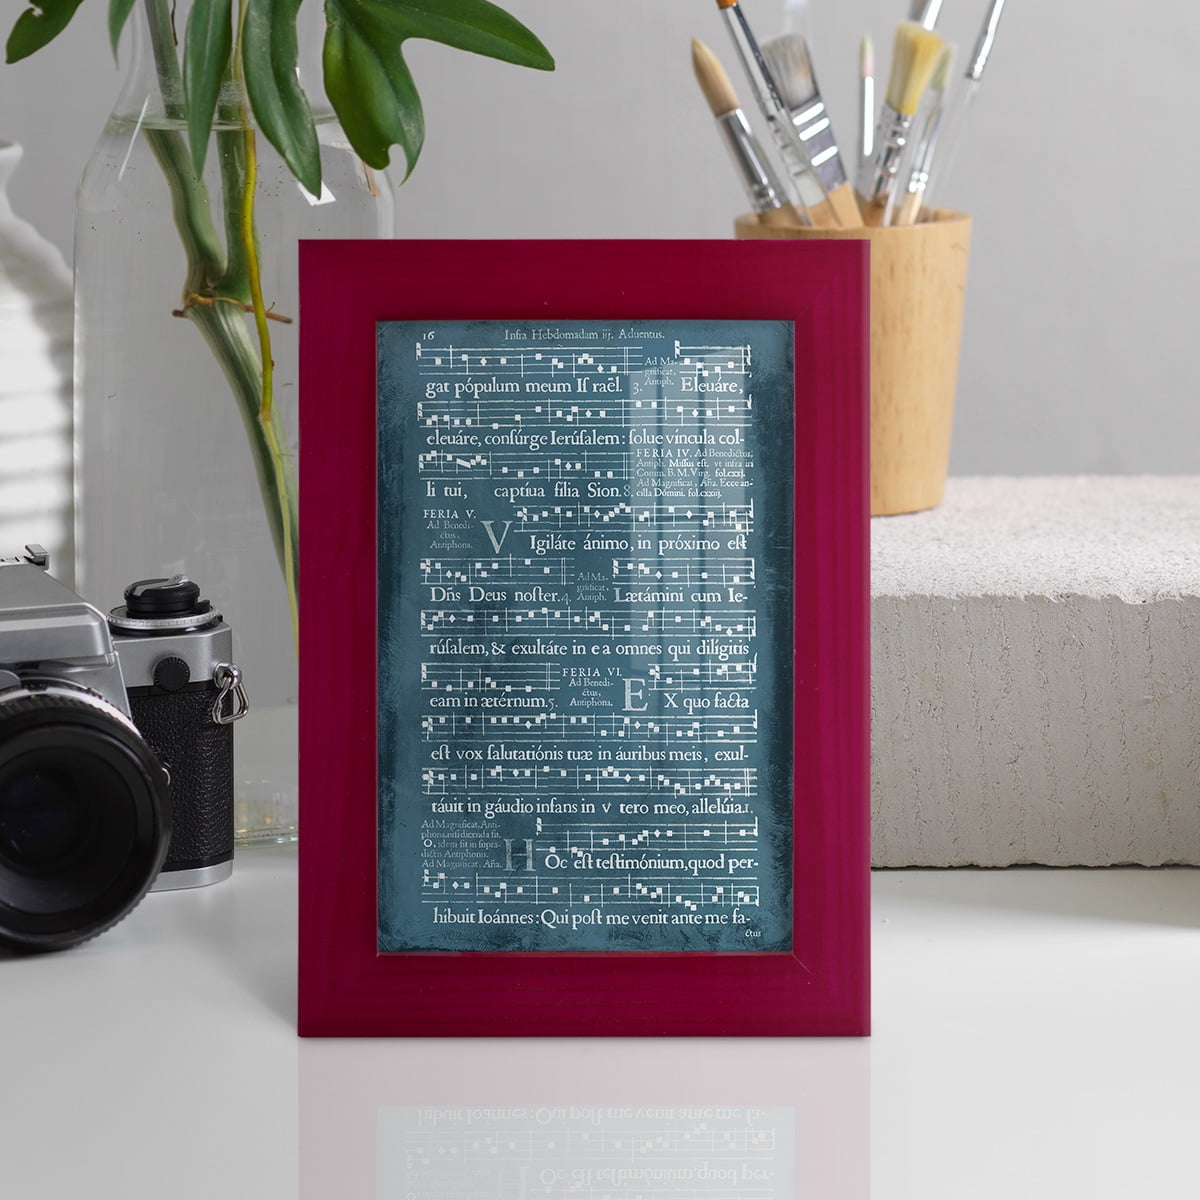 16 Infra Hebdomadam iij. Aduentus.
gat pópulum meum Iſ raël. 3. Ad Ma-
gnificat,
Antiph. Eleuáre,
eleuáre, conſúrge Ieruſalem : ſolue víncula col-
li tui, captíua fília Sion. 8. FERIA IV. Ad Benedictus,
Antiph. Miſſus eſt. vt infra in
Comm. B. M. Virg. fol.cxxj.
Ad Magnificat, Aña. Ecce an-
cilla Dómini. fol.cxxiij.
FERIA V.
Ad Benedi-
ctus,
Antiphona.
V Igiláte ánimo, in próximo eſt
Dñs Deus noſter. 4. Ad Ma-
gnificat,
Antiph. Lætámini cum Ie-
rúſalem, & exultáte in e a omnes qui dilígitis
eam in ætérnum. 5. FERIA VI.
Ad Benedi-
ctus,
Antiphona. E X quo facta
eſt vox ſalutatiónis tuæ in áuribus meis, exul-
táuit in gáudio infans in v tero meo, allelúia. 1.
Ad Magnificat, Anti-
phona
O, idem fit in ſupra-
dictis Antiphonis.
Ad Magnificat, Aña.
H Oc eſt teſtimónium, quod per-
híbuit Ioánnes : Qui poſt me venit ante me fa-
ctus